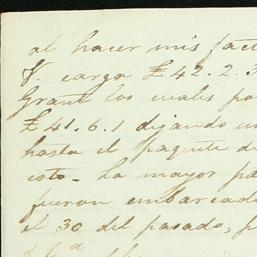 al hacer mis fact
V. carga £42.2.3
Grant los cuales pa
£41.6.1 dejando un
hasta el paquete de
esto - La mayor pa
fueron embarcado
el 30 del pasado, p